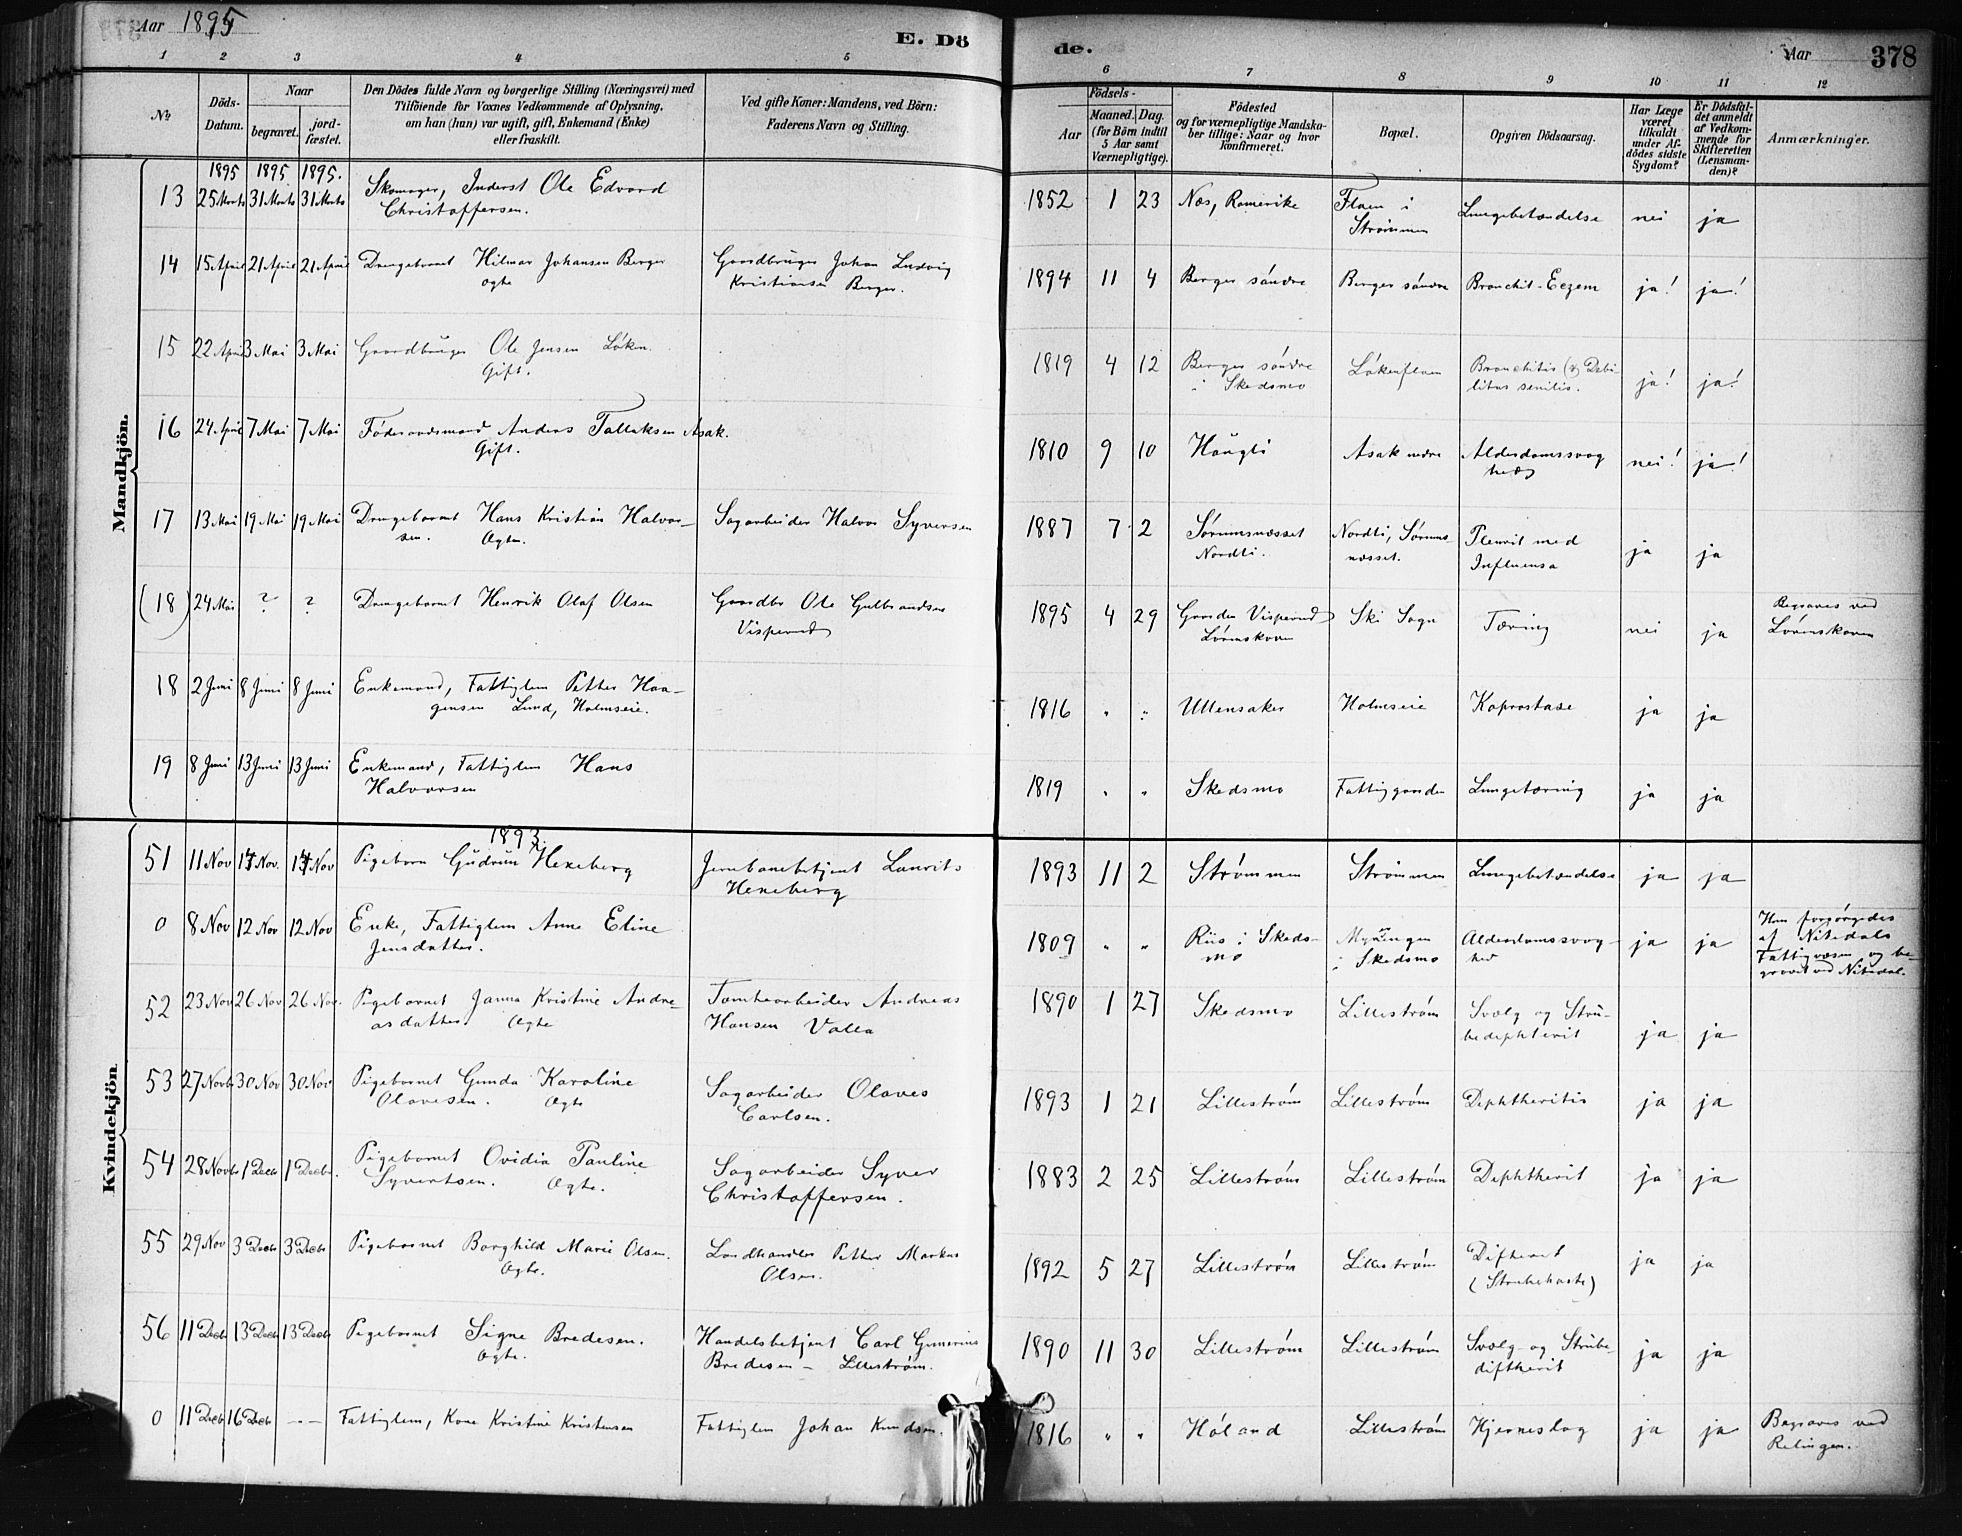 Aar 1895
E. Dö
de.
Aar
378
1 2 3 4 5 6 7 8 9 10 11 12
№
Döds-Datum.
Naar
begravet.
jord-fæstet.
Den Dödes fulde Navn og borgerlige Stilling (Næringsvei) med
Tilföiende for Voxnes Vedkommende af Oplysning,
om han (hun) var ugift, gift, Enkemand (Enke)
eller fraskilt.
Ved gifte Koner: Mandens, ved Börn:
Faderens Navn og Stilling.
Födsels-
Aar
Maaned. Dag.
(for Börn indtil
5 Aar samt
Værnepligtige).
Födested
og for værnepligtige Mandska-
ber tillige: Naar og hvor
Konfirmeret.
Bopæl.
Opgiven Dödsaarsag.
Har Læge
været
tilkaldt
under Af-
dödes sidste
Sygdom?
Er Dödsfal-
det anmeldt
af Vedkom-
mende for
Skifteretten
(Lensman-
den)?
Anmærkninger.
Mandkjön.
1895 1895 1895.
13 25 Marts 31 Marts 31 Marts Skomager, Inderst Ole Edvard
Christoffersen.
1852 1 23 Nes, Romerike Flaen i
Strømmen Lungebetændelse nei ja
14 15 April 21 April 21 April Drengebarnet Hilmar Johansen Berger
ægte
Gaardbruger Johan Ludvig
Kristiansen Berger.
1894 11 4 Berger søndre Berger søndre Bronchit-Eczem ja! ja!
15 22 April 3 Mai 3 Mai Gaardbruger Ole Jensen Løken.
Gift.
1819 4 12 Berger søndre
i Skedsmo Løkenflaen Bronchitis (&) Debi-
litas senilis. ja! ja!
16 24 April 7 Mai 7 Mai Føderaadsmand Anders Tollaksen Asak.
Gift.
1810 9 10 Haugli Asak nedre Alderdomssvag
hed nei! ja!
17 13 Mai 19 Mai 19 Mai Drengebarnet Hans Kristian Halvor-
sen. Ægte.
Sagarbeider Halvor Syversen
1887 7 2 Sørumsnesset
Nordli. Nordli, Sørums-
nesset. Pleurit med
Influensa ja ja
(18) 24 Mai ? ? Drengebarnet Henrik Olaf Olsen
Gaardbr Ole Gulbrandsen
Visperud
1895 4 29 Gaarden Visperud
Lørenskoven Ski Sogn Tæring nei ja Begraves ved
Lørenskoven
18 2 Juni 8 Juni 8 Juni Enkemand, Fattiglem Petter Haa-
gensen Lund, Holmseie.
1816 " " Ullensaker Holmseie Koprostase ja ja
19 8 Juni 13 Juni 13 Juni Enkemand, Fattiglem Hans
Halvorsen
1819 " " Skedsmo Fattiggaarden Lungetæring ja ja
Kvindekjön
1893
51 11 Nov 14 Nov. 14 Nov Pigebarn Gudrun Hexeberg
Jernbanebetjent Laurits
Hexeberg
1893 11 2 Strømmen Strømmen Lungebetændelse ja ja
0 8 Nov 12 Nov 12 Nov Enke, Fattiglem Anne Eline
Jensdatter.
1809 " " Riis i Skeds-
mo
i Skedsmo Alderdomssvag-
hed ja ja Hun forsørgedes
af Nitedals
Fattigvæsen og be
gravet ved Nitedal.
52 23 Nov 26 Nov 26 Nov. Pigebarnet Janna Kristine Andre-
asdatter. Ægte
Tomtearbeider Andreas
Hansen Valla
1890 1 27 Skedsmo Lillestrøm Svælg og Stru-
bediphterit ja ja
53 27 Novbr 30 Nov 30 Nov Pigebarnet Gunda Karoline
Olavesen. Ægte
Sagarbeider Olaves
Carlsen.
1893 1 21 Lillestrøm Lillestrøm Diphtheritis ja ja
54 28 Novbr 1 Decbr 1 Decbr. Pigebarnet Ovidia Pauline
Syvertsen. Ægte.
Sagarbeider Syver
Christoffersen.
1883 2 25 Lillestrøm Lillestrøm Diphtherit ja ja
55 29 Nov 3 Decbr 3 Decbr Pigebarnet Borghild Marie Olsen.
Ægte.
Landhandler Petter Markus
Olsen.
1892 5 27 Lillestrøm Lillestrøm Difterit
(Strubehoste) ja ja
56 11 Decbr 13 Decbr 13 Decbr Pigebarnet Signe Bredesen.
Ægte.
Handelsbetjent Carl Gunerius
Bredesen – Lillestrøm.
1890 11 30 Lillestrøm Lillestrøm Svælg- og Strube-
diftherit ja ja
0 11 Decbr 16 Decbr - - - Fattiglem, Kone Kristine Kristensen
Fattiglem Johan Knudsen.
1816 " " Høland Lillestrøm Hjerneslag ja ja Begraves ved
Relingen.